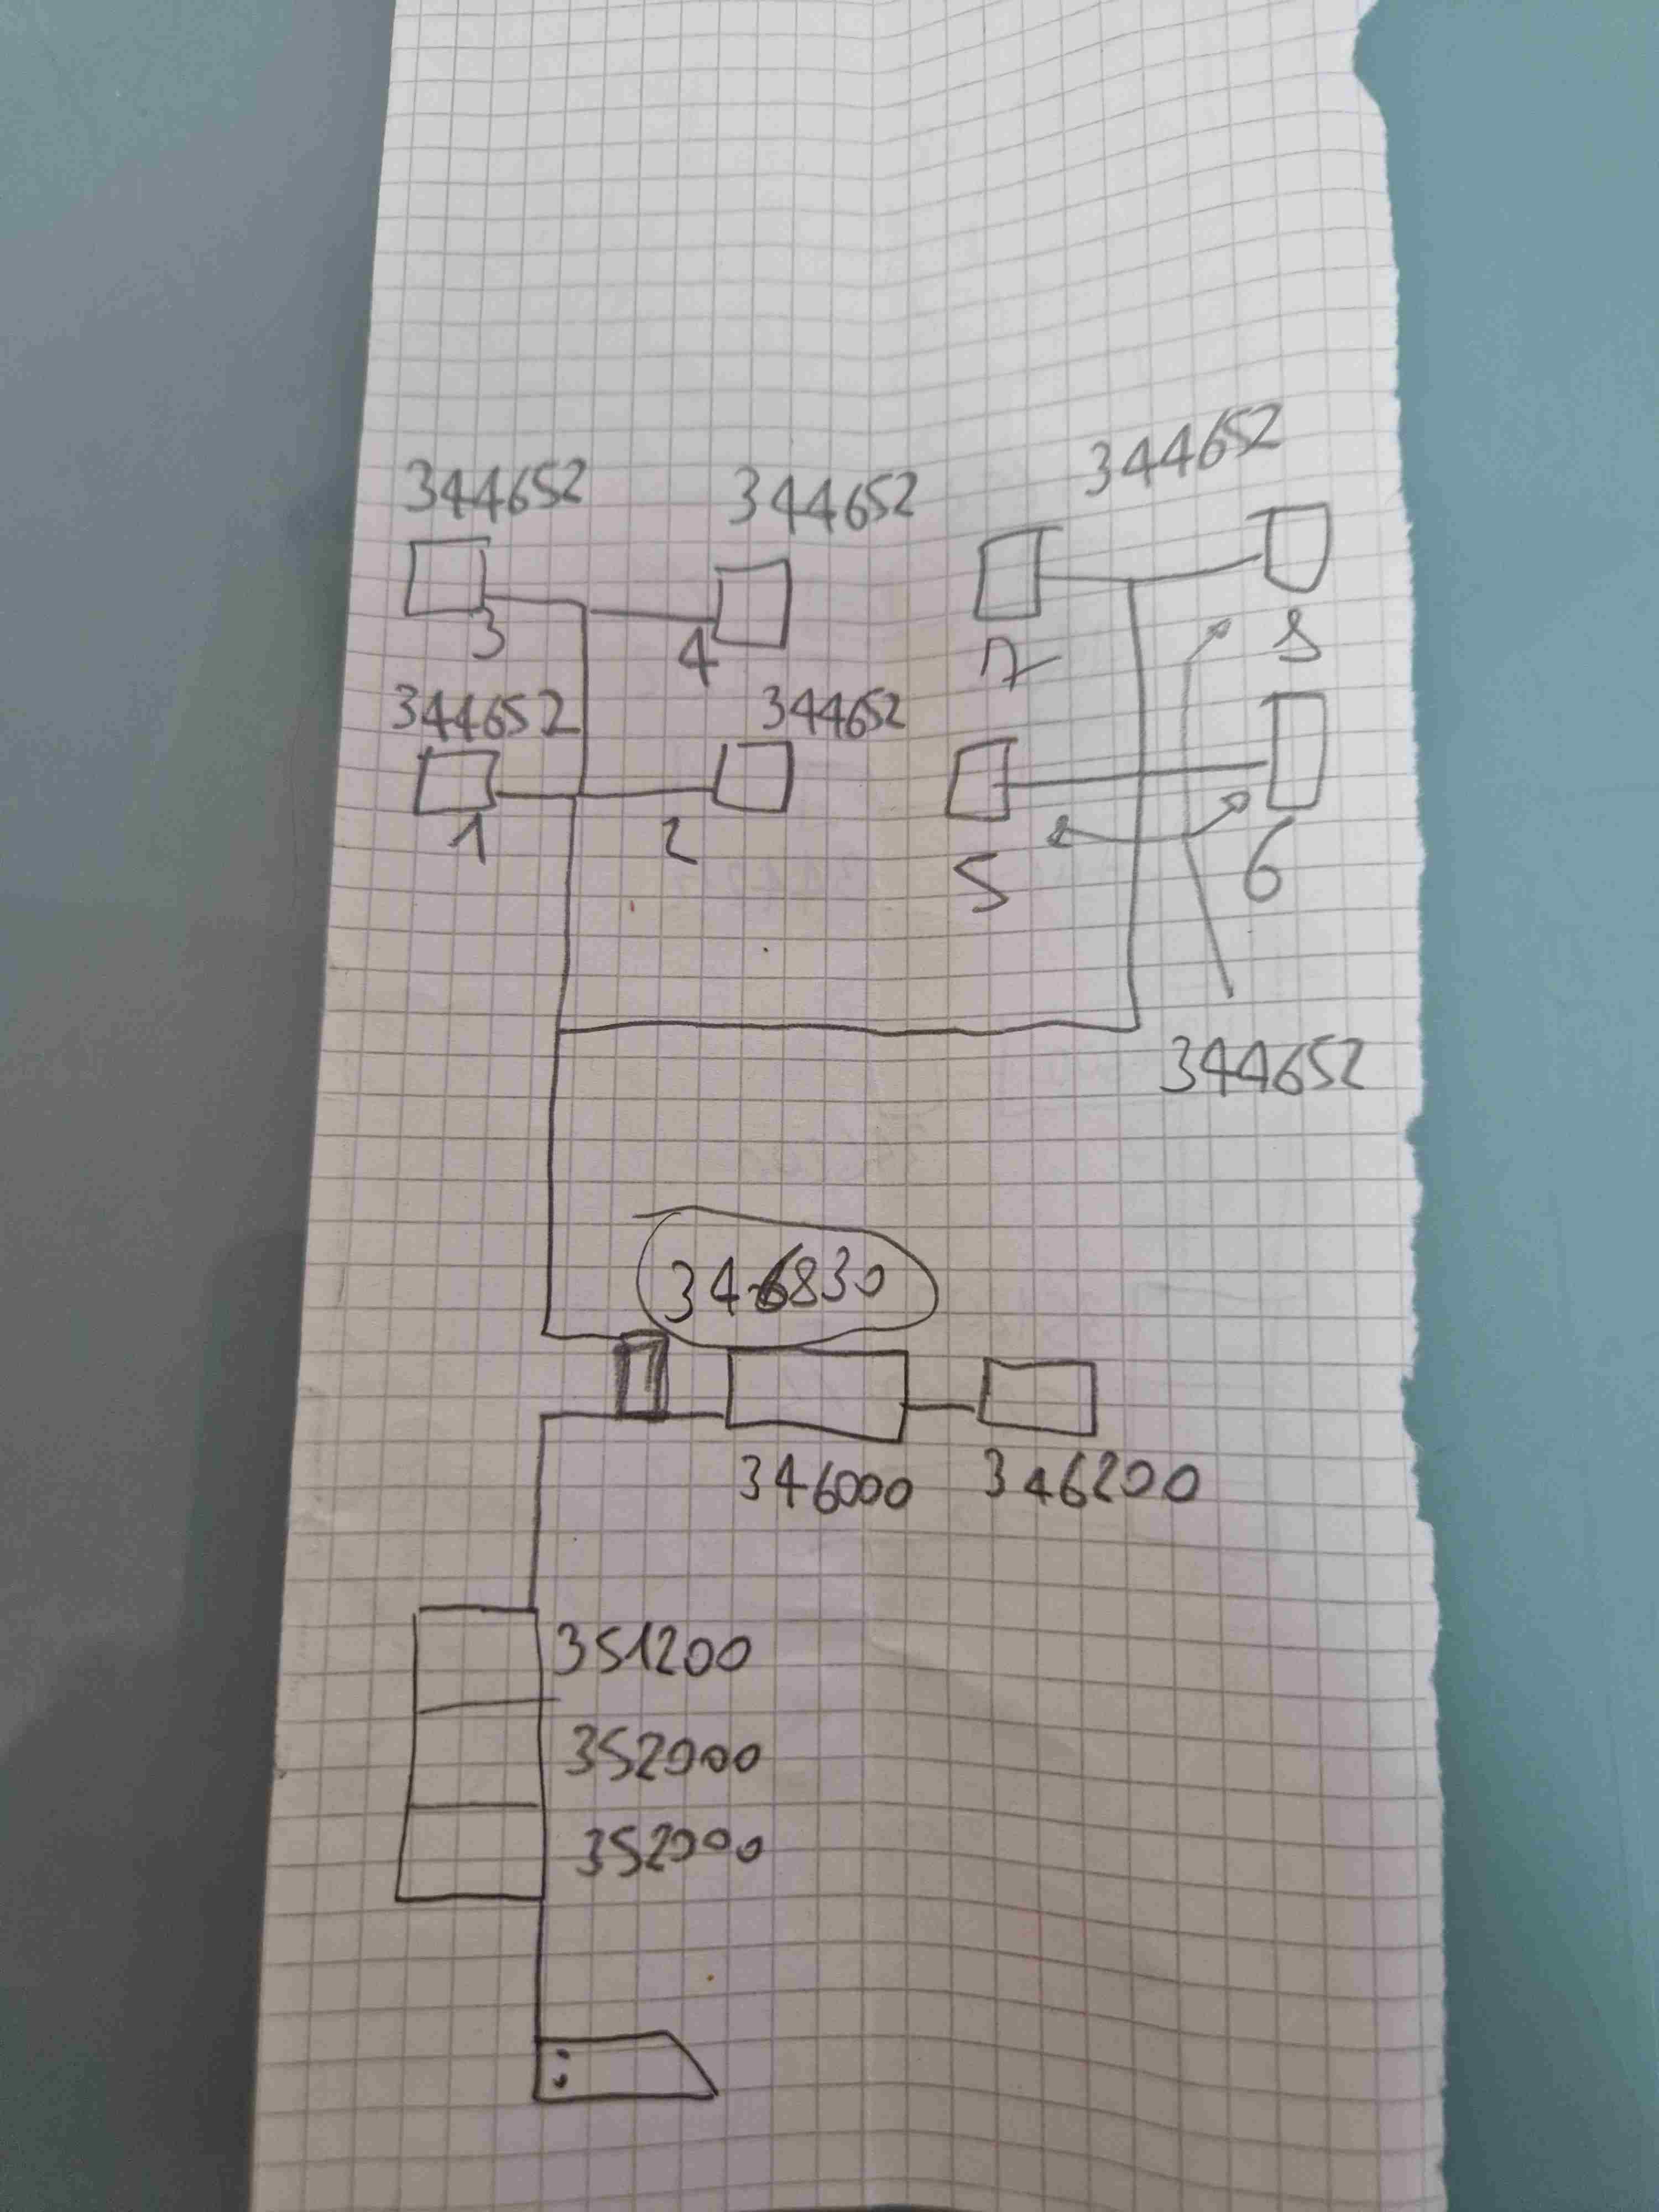 344652
344652
344652
3
4
7
8
344652
344652
1
2
5
6
344652
346830
346000
346200
351200
352000
352000